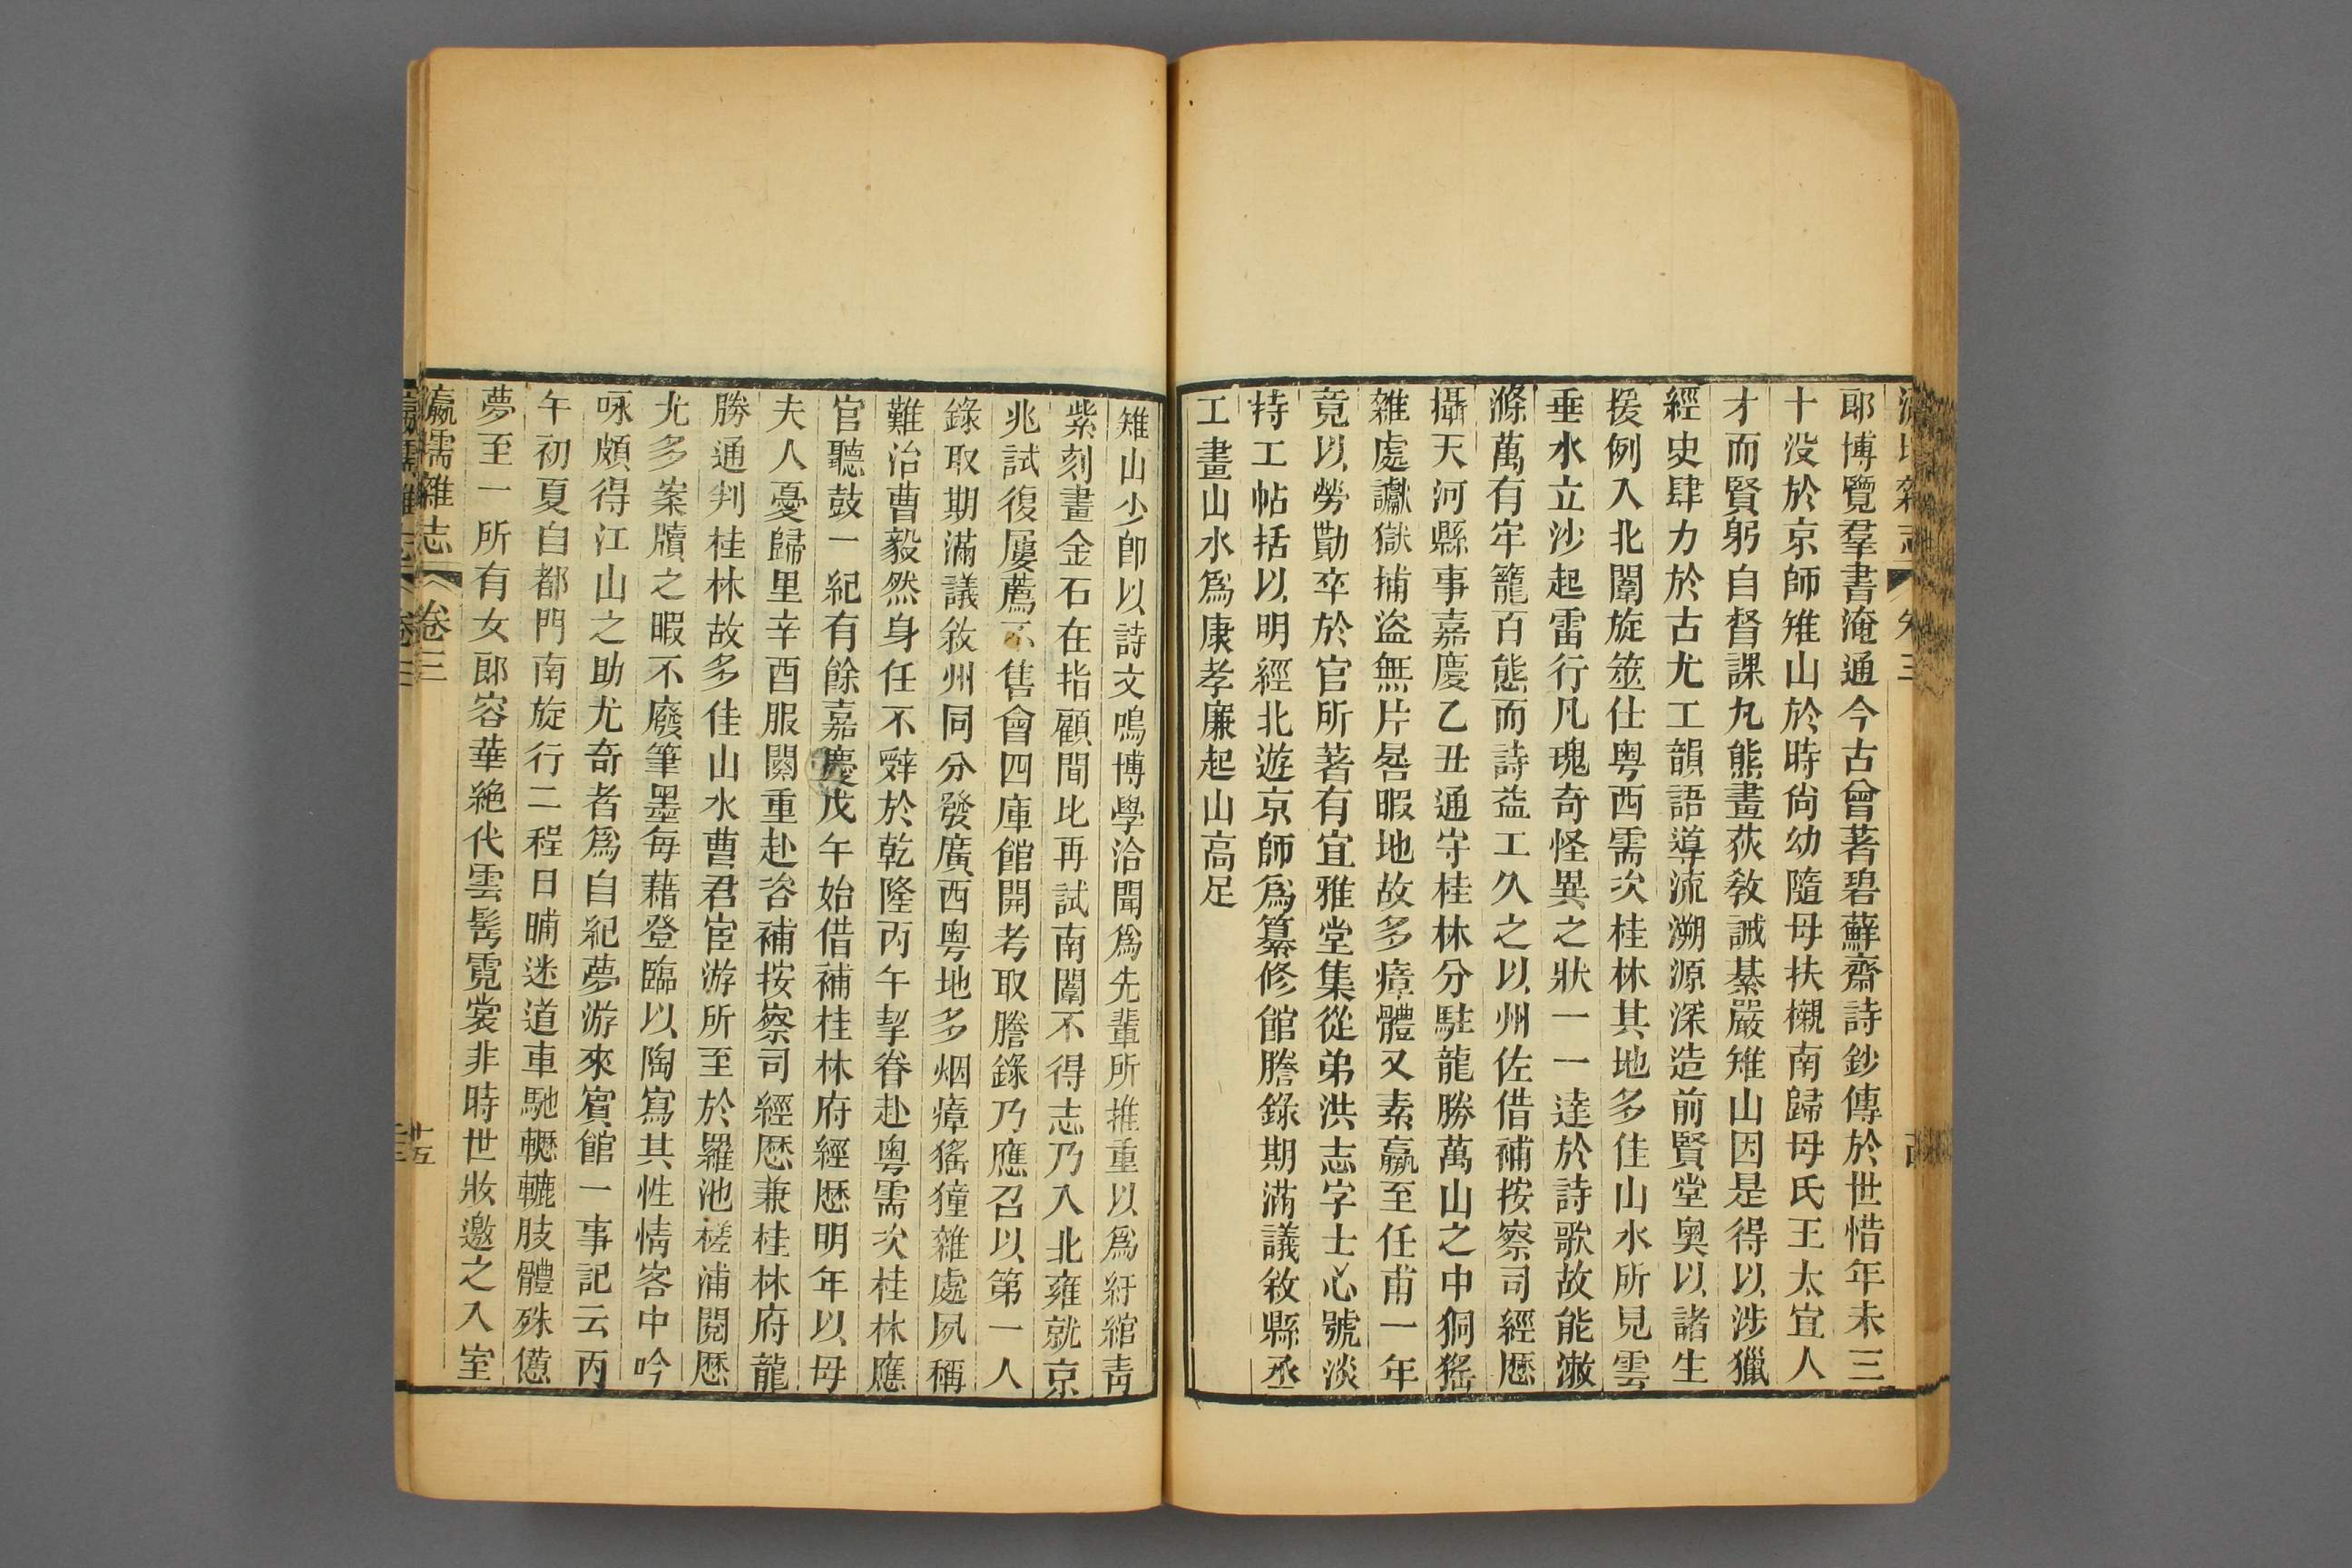 郎博覽羣書淹通今古曾著碧蘚齋詩鈔傳於世惜年未三
十没於京師雉山於時尙幼隨母扶櫬南歸母氏王太宜人
才而賢躬自督課丸熊畫荻敎誡綦嚴雉山因是得以涉獵
經史肆力於古尤工韻語導流溯源深造前賢堂奧以諸生
援例入北闈旋筮仕粤西需次桂林其地多佳山水所見雲
垂水立沙起雷行凡瑰奇怪異之狀一一達於詩歌故能漱
滌萬有牢籠百態而詩益工久之以州佐借補按察司經歷
攝天河縣事嘉慶乙丑通守桂林分駐龍勝萬山之中狪猺
雜處讞獄捕盜無片晷暇地故多瘴體又素羸至任甫一年
竟以勞勩卒於官所著有宜雅堂集從弟洪志字士心號淡
特工帖括以明經北遊京師爲纂修館謄錄期滿議敘縣丞
工畫山水爲康孝廉起山高足
雉山少卽以詩文鳴博學洽聞爲先輩所推重以爲紆綰靑
紫刻畫金石在指顧間比再試南闈不得志乃入北雍就京
兆試復屢薦不售會四庫館開考取謄錄乃應召以第一人
錄取期滿議敘州同分發廣西粤地多烟瘴猺獞雜處夙稱
難治曹毅然身任不辭於乾隆丙午挈眷赴粤需次桂林應
官聽鼓一紀有餘嘉慶戊午始借補桂林府經歷明年以母
夫人憂歸里辛酉服闋重赴咨補按察司經歷兼桂林府龍
勝通判桂林故多佳山水曹君宦游所至於羅池槎浦閱歷
尤多案牘之暇不廢筆墨每藉登臨以陶寫其性情客中吟
咏頗得江山之助尤奇者爲自紀夢游來賓館一事記云丙
午初夏自都門南旋行二程日晡迷道車馳轣轆肢體殊憊
夢至一所有女郎容華絶代雲髩霓裳非時世妝邀之入室
瀛壖雜志 卷三 十五